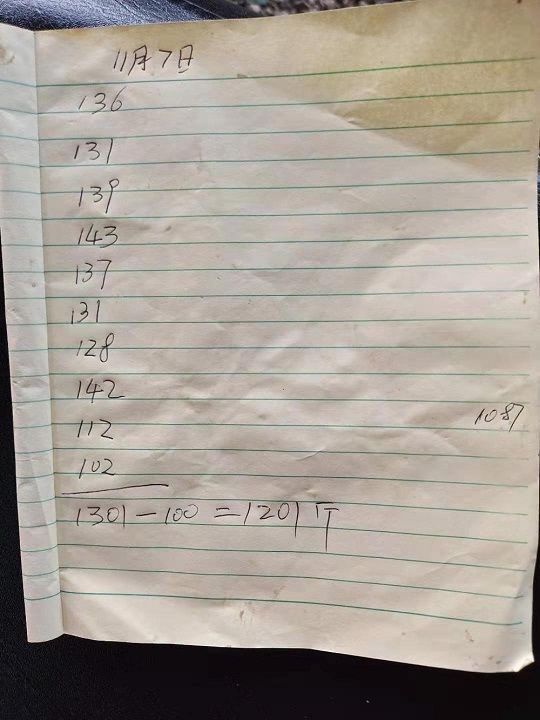 11月7日
136
131
139
143
137
131
128
142
112
1087
102
1301-100=1201斤